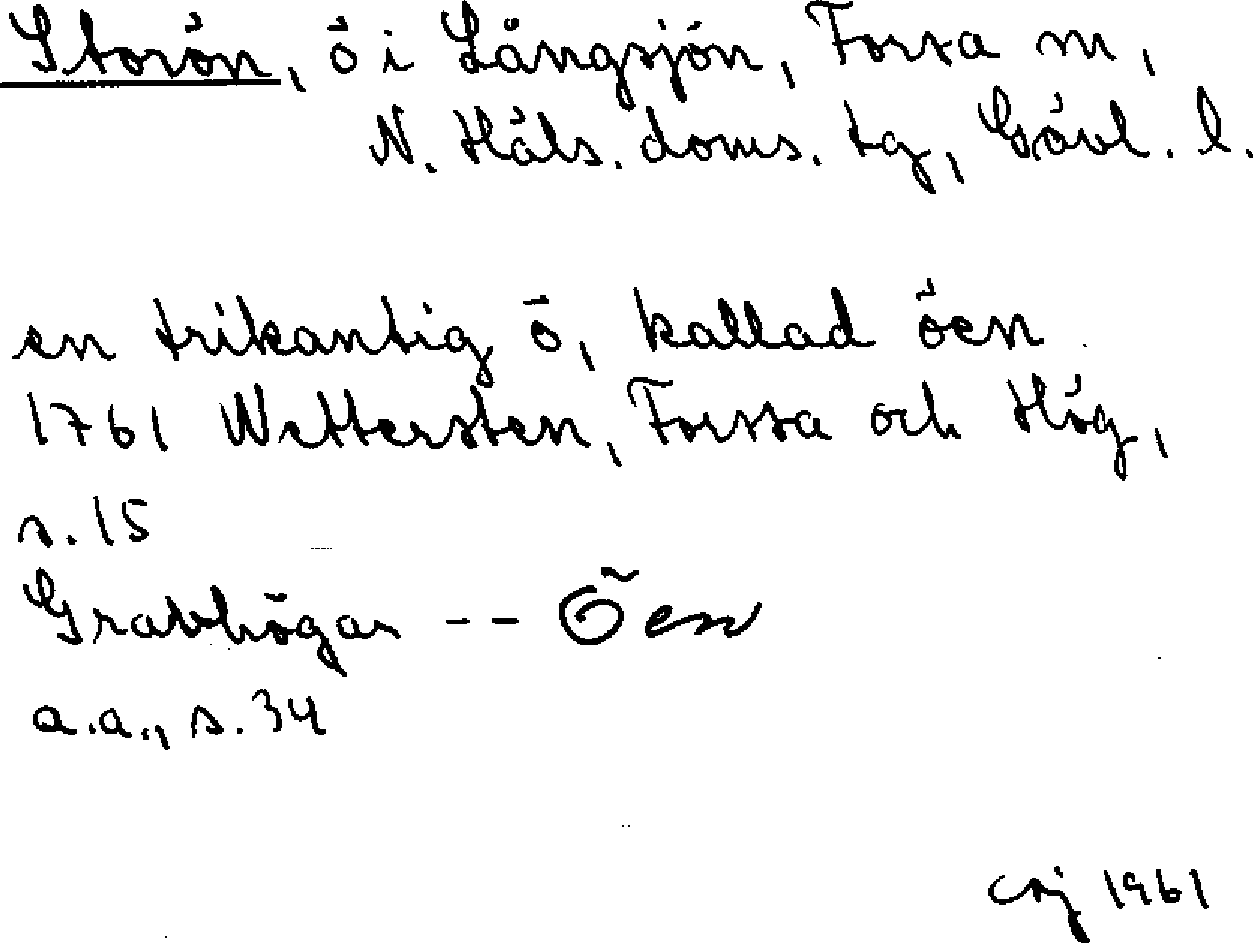 Storön, ö i Långsjön, Forsa sn,
N. Häls. doms. tg, Gävl. l.
en trikantig ö, kallad öen
1761 Wettersten, Forssa och Hög,
s. 15
Gravhögar -- Öen
a.a., s. 34
coj 1961